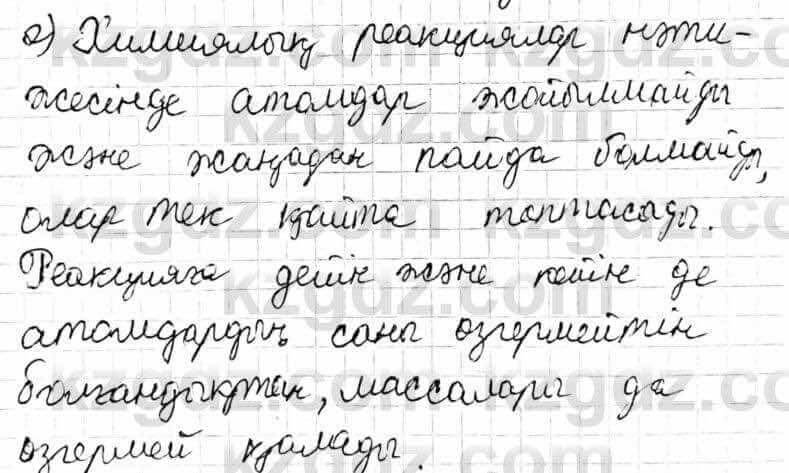 ә) Химиялық реакциялар нәти-
жесінде атомдар жойылмайды
және жаңадан пайда болмайды,
олар тек қайта топтасады.
Реакцияға дейін және кейін де
атомдардың саны өзгермейтін
болғандықтан, массалары да
өзгермей қалады.
kzgdz.com